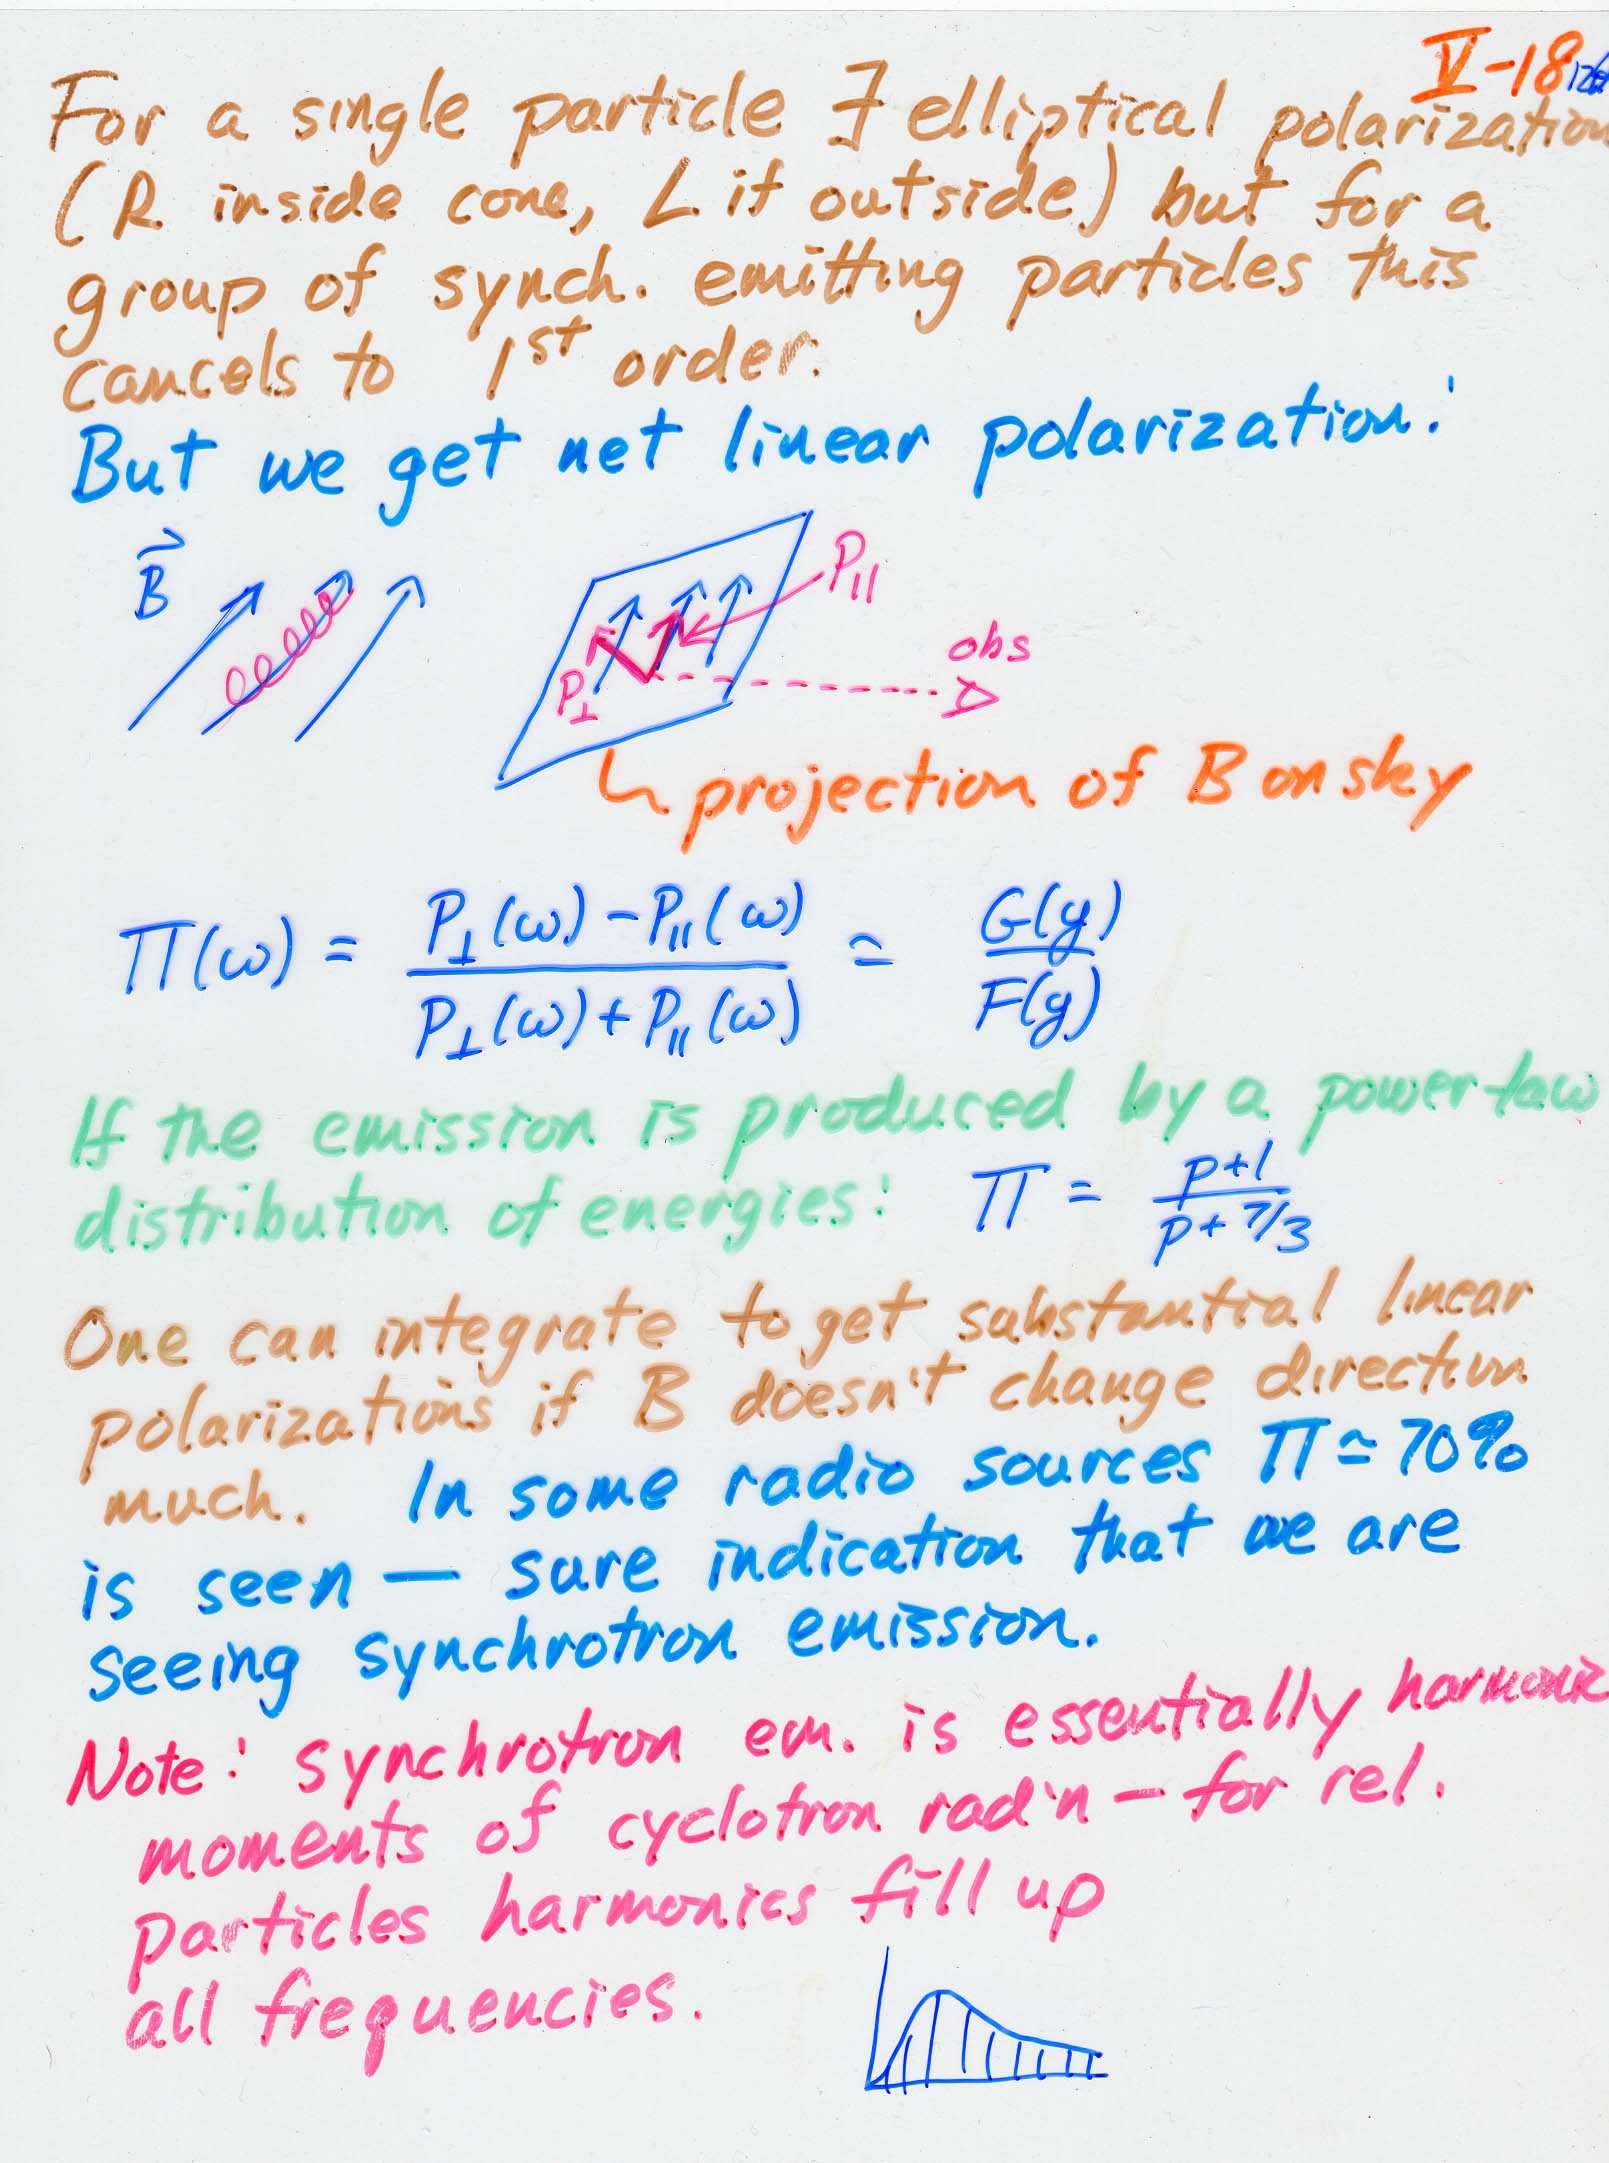 V-18
For a single particle ∃ elliptical polarization
(R inside cone, L if outside) but for a
group of synch. emitting particles this
cancels to 1st order.
But we get net linear polarization:
B⃗
P∥
obs
P⊥
projection of B on sky
Π(ω) = (P⊥(ω) - P∥(ω)) / (P⊥(ω) + P∥(ω)) ≃ G(y) / F(y)
If the emission is produced by a power-law
distribution of energies: Π = (p+1) / (p + 7/3)
One can integrate to get substantial linear
polarizations if B doesn't change direction
much. In some radio sources Π ≃ 70%
is seen — sure indication that we are
seeing synchrotron emission.
Note: Synchrotron em. is essentially harmonic
moments of cyclotron rad'n — for rel.
particles harmonics fill up
all frequencies.